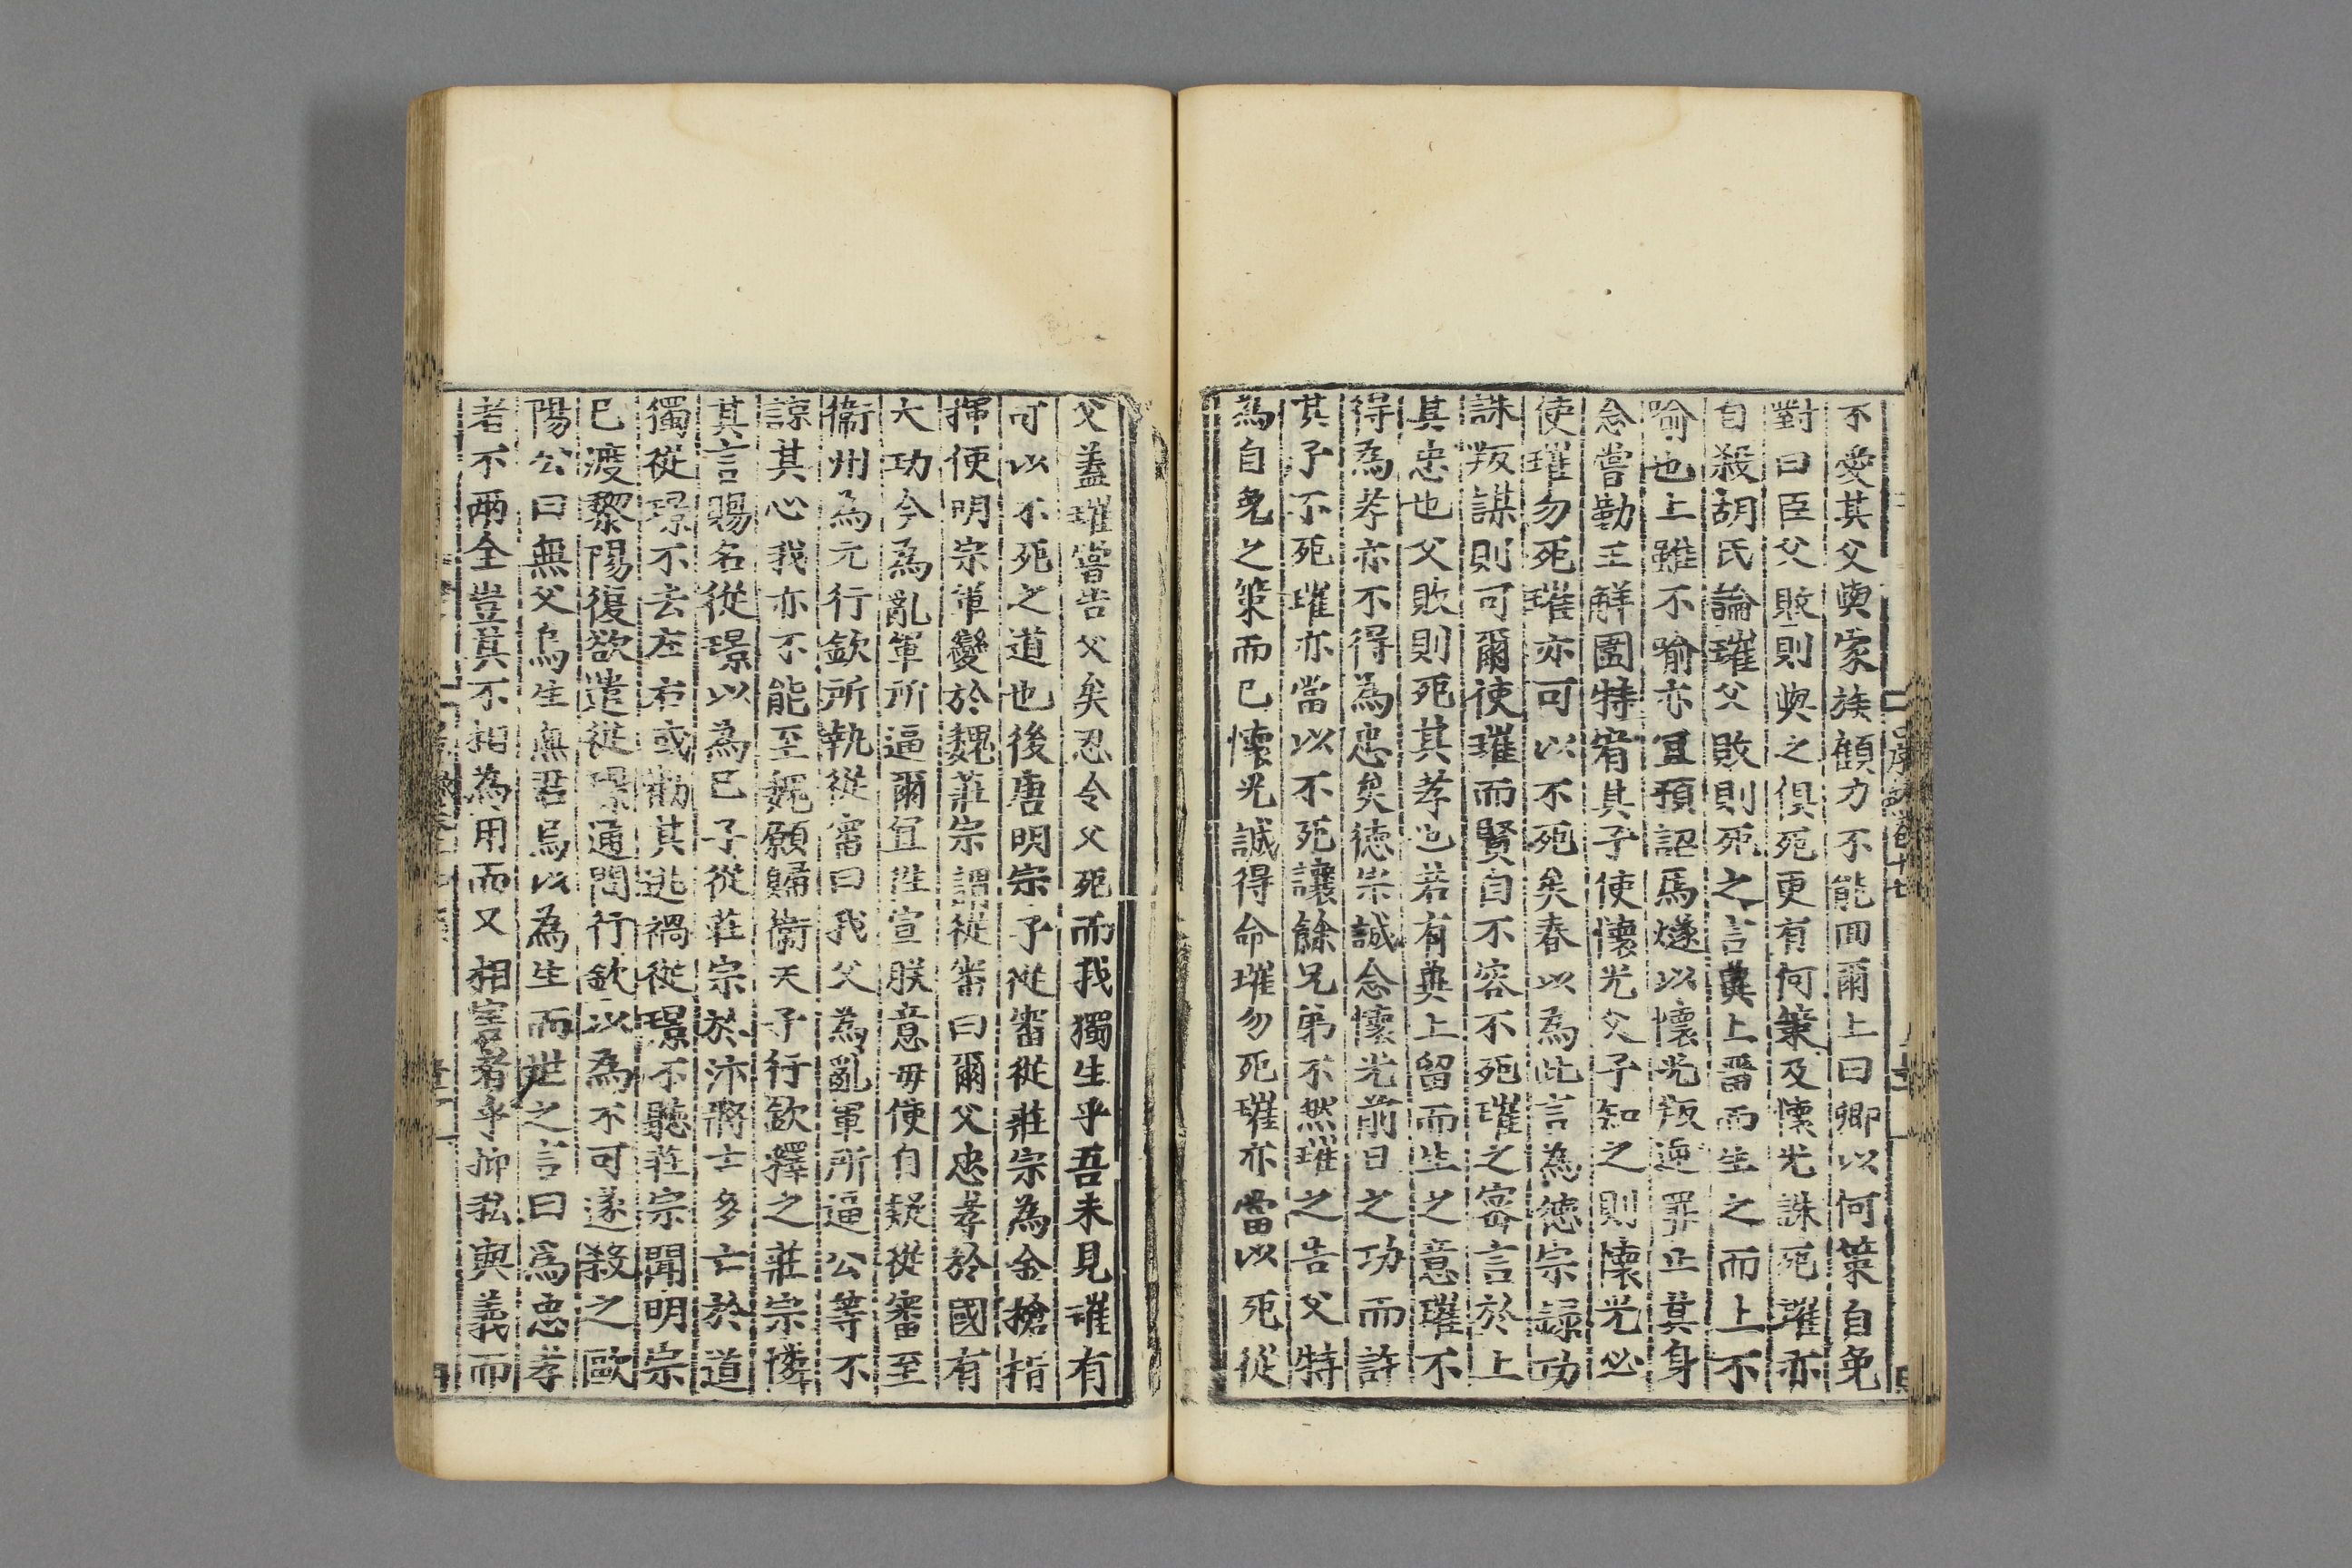 不愛其父與家族顧力不能回爾上曰卿以何策自免
對曰臣父敗則與之俱死更有何策及懷光誅死璀亦
自殺胡氏論璀父敗則死之言冀上畱而生之而上不
喻也上雖不喻亦宜預詔馬燧以懷光叛逆罪止其身
念嘗勤王解圍特宥其子使懷光父子知之則懷光必
使璀勿死璀亦可以不死矣春以為此言為德宗録功
誅叛謀則可爾使璀而賢自不容不死璀之密言於上
其忠也父敗則死其孝也若有冀上留而生之意璀不
得為孝亦不得為忠矣德宗誠念懷光前日之功而許
其子不死璀亦當以不死讓餘兄弟不然璀之告父特
為自免之策而已懷光誠得命璀勿死璀亦當以死從
父蓋璀嘗告父矣忍令父死而我獨生乎吾未見璀有
可以不死之道也後唐明宗子從審從莊宗為金搶指
揮使明宗軍變於魏莊宗謂從審曰爾父忠孝於國有
大功今為亂軍所逼爾宜往宣朕意毋使自疑從審至
衞州為元行欽所執從審曰我父為亂軍所逼公等不
諒其心我亦不能至魏願歸衞天子行欽釋之莊宗憐
其言賜名從璟以為已子從莊宗於汴將士多亡於道
獨從璟不去左右或勸其逃禍從璟不聽莊宗聞明宗
已渡黎陽復欲遣從璟通問行欽以為不可遂殺之歐
陽公曰無父烏生無君烏以為生而世之言曰為忠孝
者不兩全豈其不相為用而又相害者乎抑私與義而